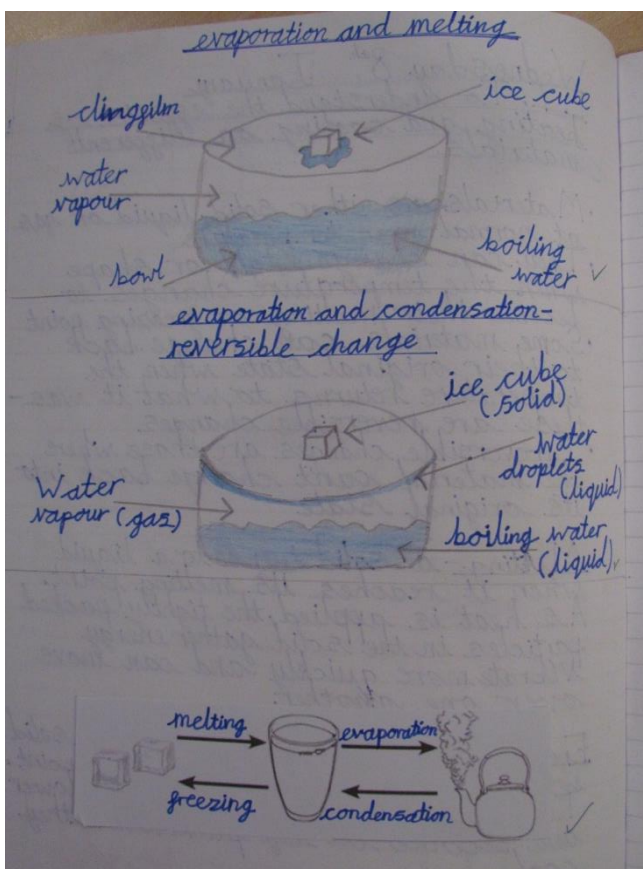 evaporation and melting
clingfilm
ice cube
water
vapour
bowl
boiling
water
evaporation and condensation-
reversible change
ice cube
(solid)
water
droplets
(liquid)
Water
vapour (gas)
boiling water
(liquid)
melting
evaporation
freezing
condensation